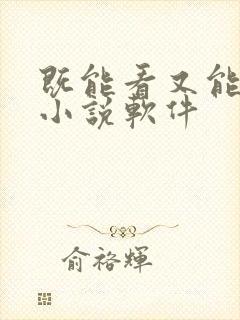 既能看又能
小說軟件
俞裕輝